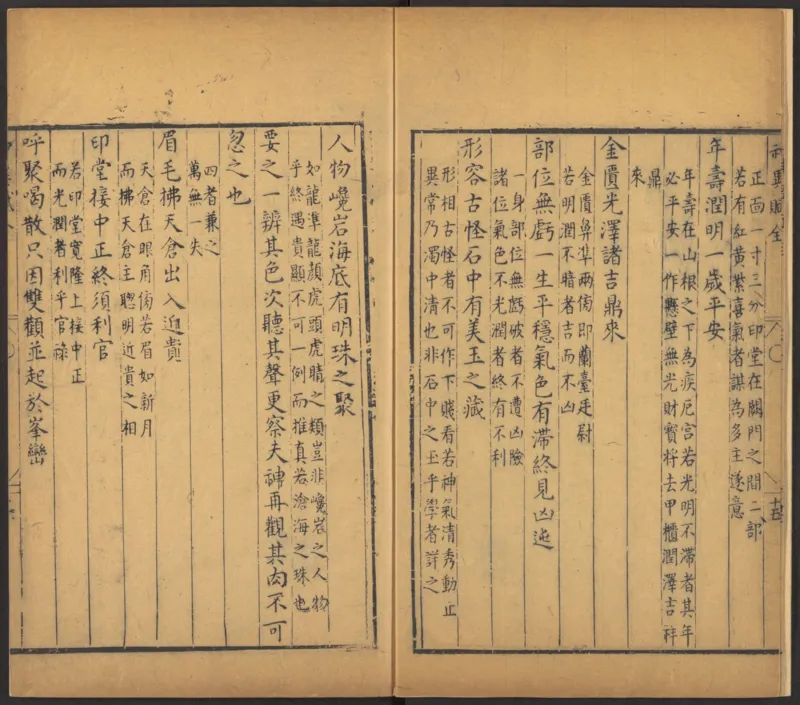 正面一寸三分印堂在闕門之間二部
若有紅黃紫喜氣者謀為多主遂意
年壽潤明一歲平安
年壽在山根之下為疾厄宮若光明不滯者其年
必平安一作懸壁無光財寳將去甲櫃潤澤吉祥
鼎
來
金匱光澤諸吉鼎來
金匱鼻準兩傍即蘭臺廷尉
若明潤不暗者吉而不凶
部位無虧一生平穩氣色有滯終見凶迍
一身部位無虧破者不遭凶險
諸位氣色不光潤者終有不利
形容古怪石中有美玉之藏
形相古怪者不可作下賤看若神氣清秀動止
異常乃濁中清也非石中之玉乎學者詳之
人物巉岩海底有明珠之聚
如龍準龍顏虎頭虎睛之類豈非巉岩之人物
乎終遇貴顯不可一例而推真若滄海之珠也
要之一辨其色次聽其聲更察夫神再觀其肉不可
忽之也
四者兼之
萬無一失
眉毛拂天倉出入近貴
天倉在眼角傍若眉如新月
而拂天倉主聰明近貴之相
印堂接中正終須利官
若印堂寬隆上接中正
而光潤者利乎官祿
呼聚喝散只因雙顴並起於峯巒